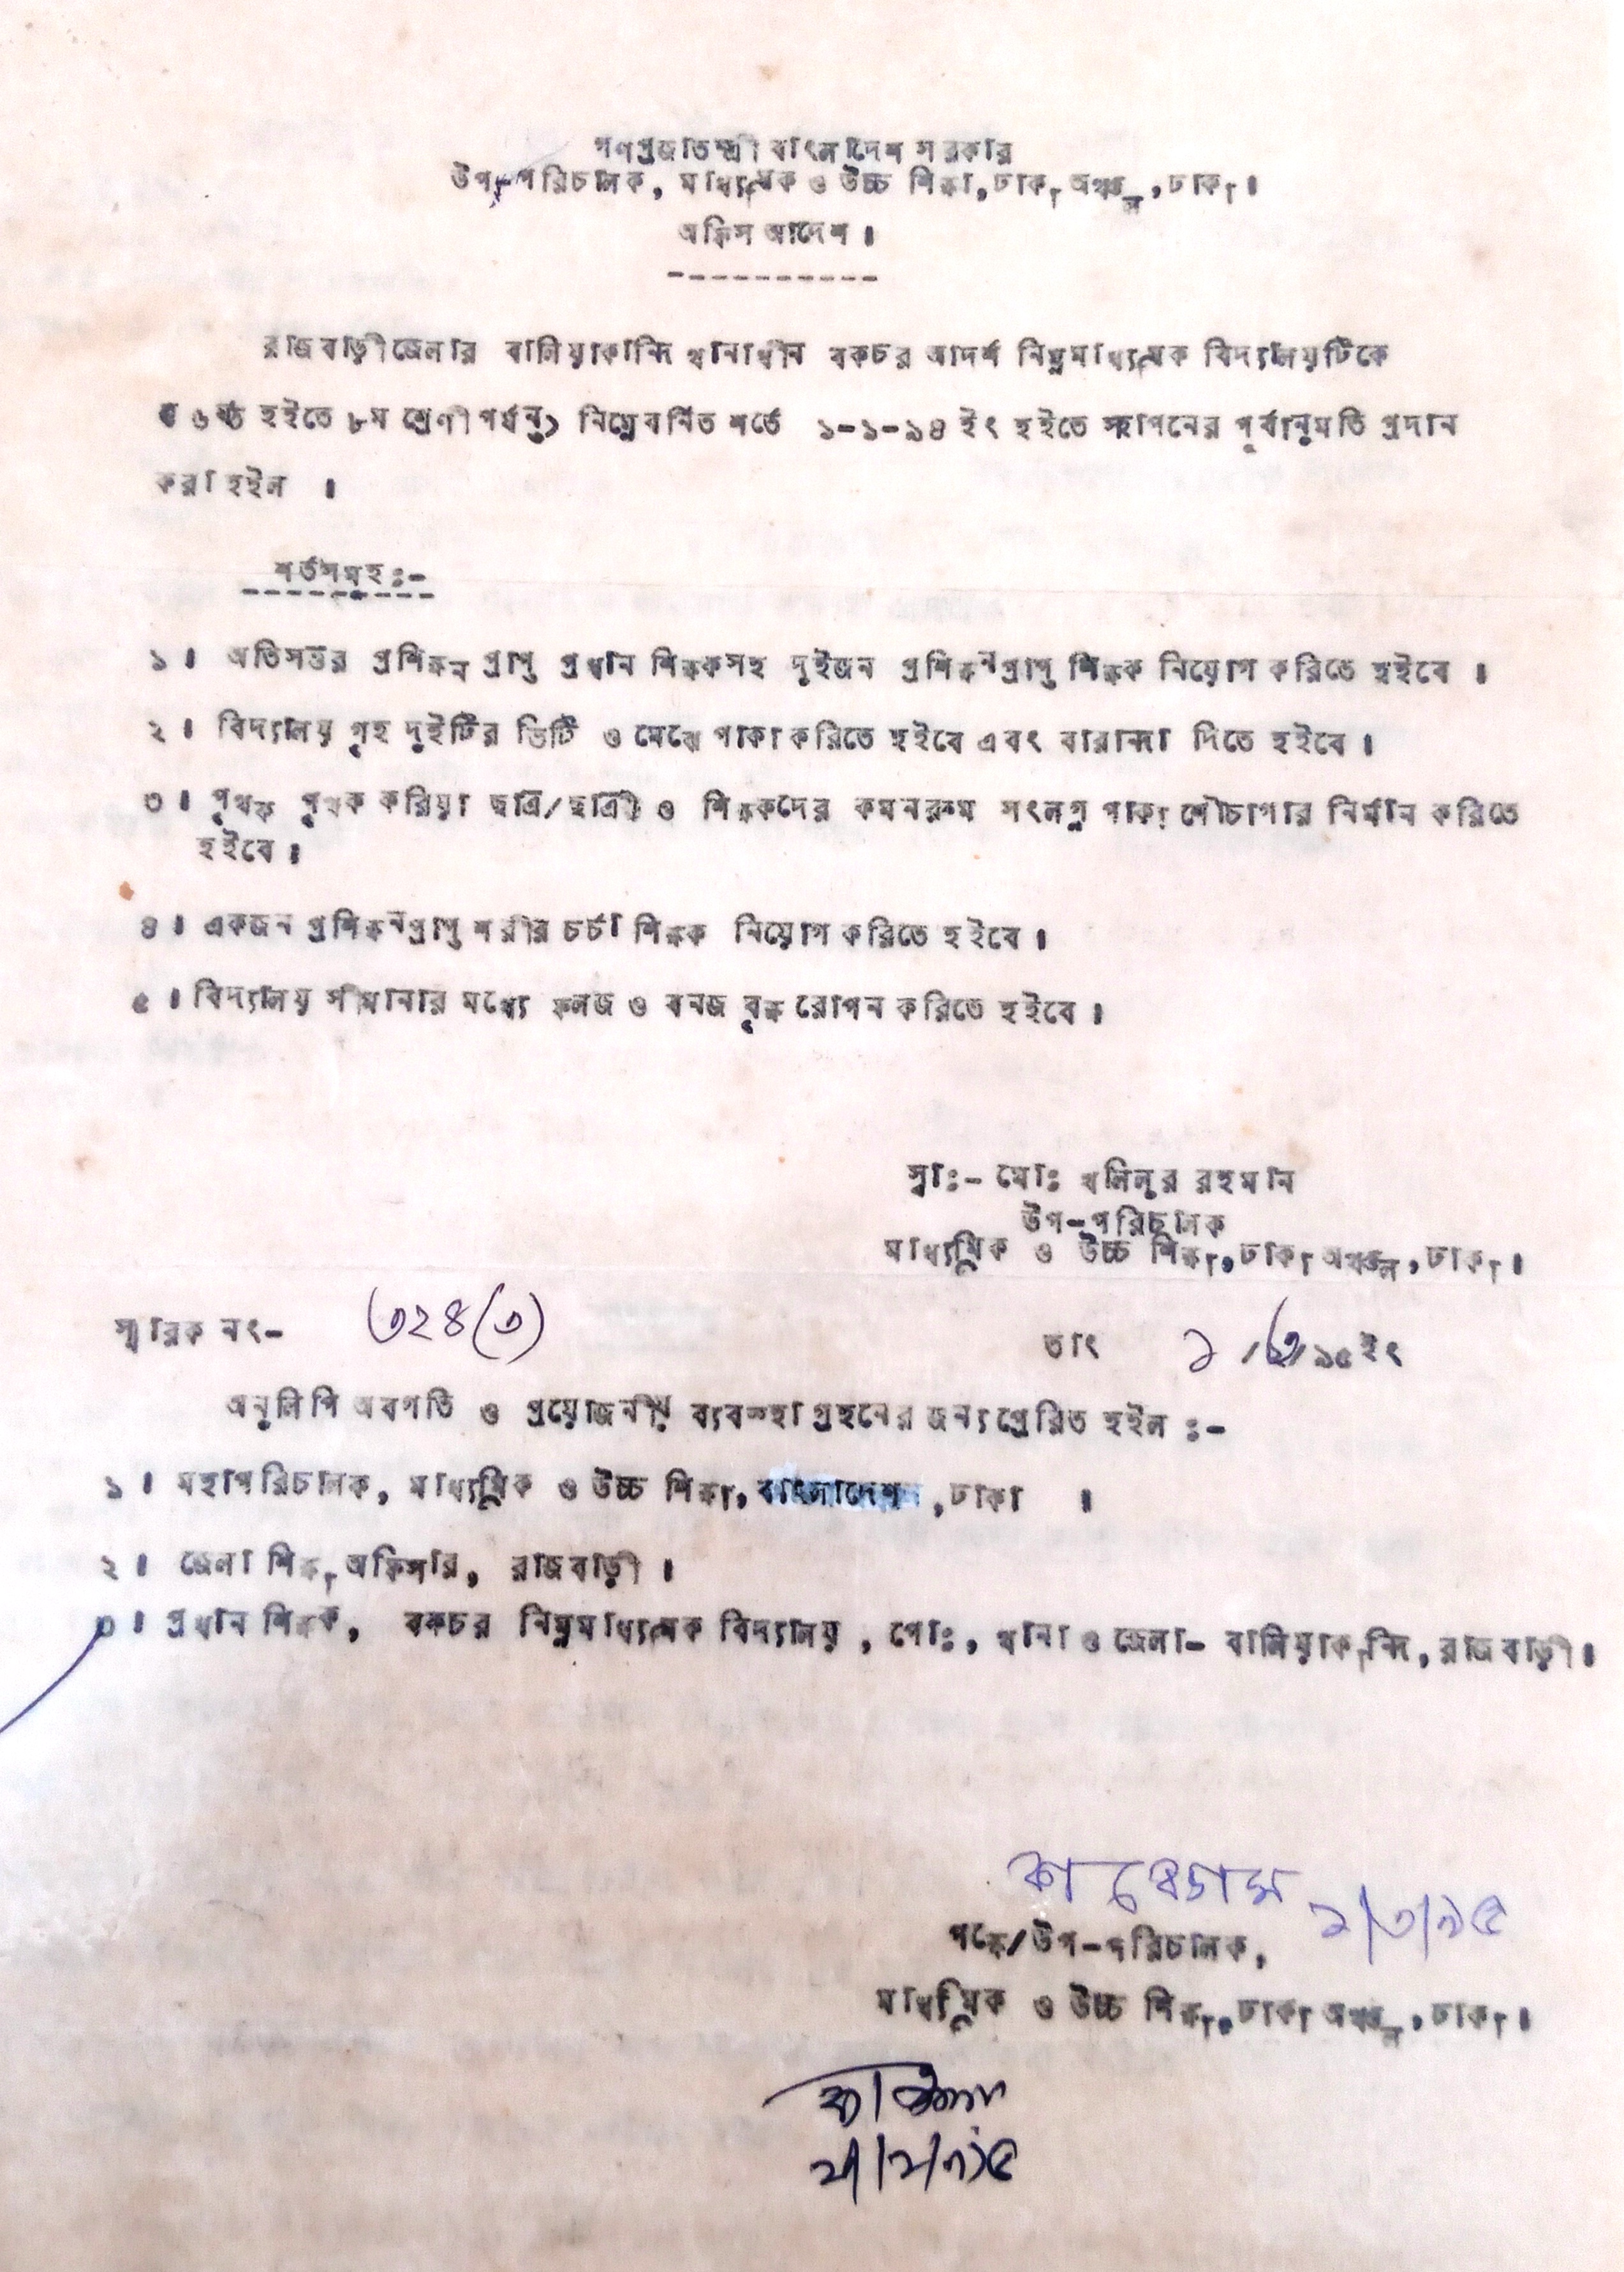 গণপ্রজাতন্ত্রী বাংলাদেশ সরকার
উপ-পরিচালক, মাধ্যমিক ও উচ্চ শিক্ষা, ঢাকা অঞ্চল, ঢাকা।
অফিস আদেশ।
রাজবাড়ী জেলার বালিয়াকান্দি থানাধীন বকচর আদর্শ নিম্নমাধ্যমিক বিদ্যালয়টিকে
( ৬ষ্ঠ হইতে ৮ম শ্রেণী পর্যন্ত) নিম্নে বর্নিত শর্তে ১-১-৯৪ ইং হইতে স্থাপনের পূর্বানুমতি প্রদান
করা হইল ।
শর্তসমূহ ঃ-
১। অতিসত্তর প্রশিক্ষন প্রাপ্ত প্রধান শিক্ষকসহ দুইজন প্রশিক্ষনপ্রাপ্ত শিক্ষক নিয়োগ করিতে হইবে ।
২। বিদ্যালয় গৃহ দুইটির ভিটি ও মেঝে পাকা করিতে হইবে এবং বারান্দা দিতে হইবে ।
৩। পৃথক পৃথক করিয়া ছাত্র/ছাত্রী ও শিক্ষকদের কমনরুম সংলগ্ন পাকা শৌচাগার নির্মান করিতে
হইবে ।
৪। একজন প্রশিক্ষনপ্রাপ্ত শরীর চর্চা শিক্ষক নিয়োগ করিতে হইবে ।
৫। বিদ্যালয় সীমানার মধ্যে ফলজ ও বনজ বৃক্ষ রোপন করিতে হইবে ।
স্বাঃ- মোঃ খলিলুর রহমান
উপ-পরিচালক
মাধ্যমিক ও উচ্চ শিক্ষা, ঢাকা অঞ্চল, ঢাকা।
স্মারক নং- ৩২৪(৩) তাং ১/৩/৯৫ইং
অনুলিপি অবগতি ও প্রয়োজনীয় ব্যবস্হা গ্রহনের জন্য প্রেরিত হইল ঃ-
১। মহাপরিচালক, মাধ্যমিক ও উচ্চ শিক্ষা, বাংলাদেশ, ঢাকা ।
২। জেলা শিক্ষা অফিসার, রাজবাড়ী ।
৩। প্রধান শিক্ষক, বকচর নিম্নমাধ্যমিক বিদ্যালয়, পোঃ, থানা ও জেলা- বালিয়াকান্দি, রাজবাড়ী।
১/৩/৯৫
পক্ষে/উপ-পরিচালক,
মাধ্যমিক ও উচ্চ শিক্ষা, ঢাকা অঞ্চল, ঢাকা।